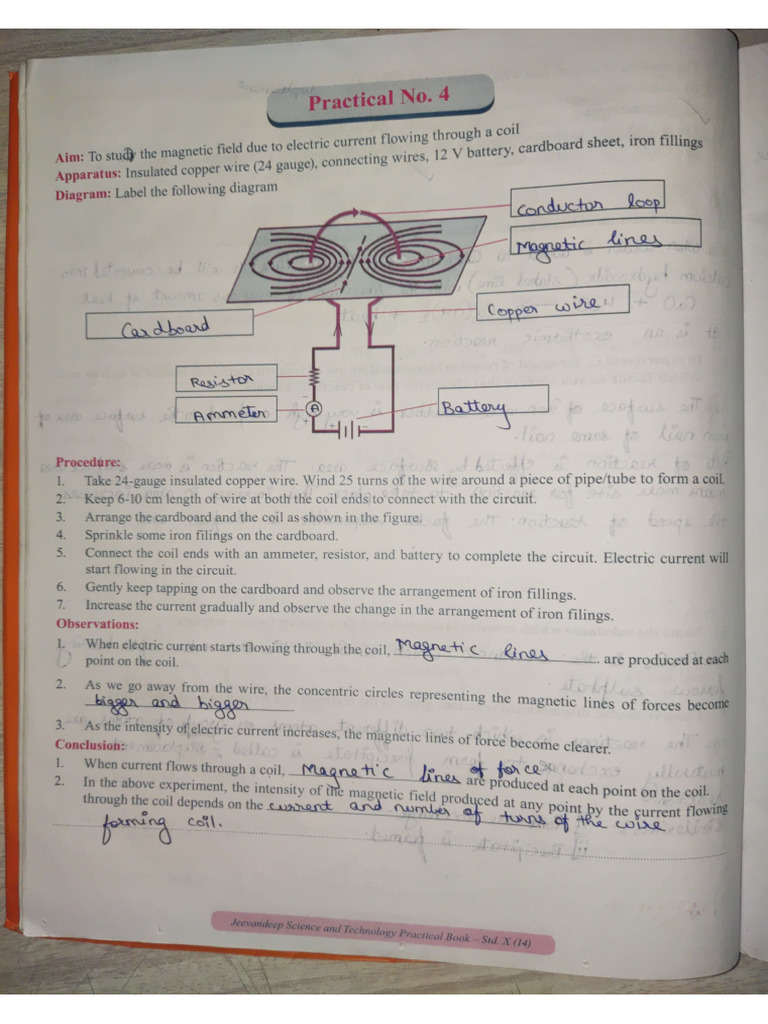 Practical No. 4
Aim: To study the magnetic field due to electric current flowing through a coil
Apparatus: Insulated copper wire (24 gauge), connecting wires, 12 V battery, cardboard sheet, iron fillings
Diagram: Label the following diagram
Conductor loop
Magnetic lines
Copper wire
Cardboard
Resistor
Ammeter
A
Battery
Procedure:
1. Take 24-gauge insulated copper wire. Wind 25 turns of the wire around a piece of pipe/tube to form a coil.
2. Keep 6-10 cm length of wire at both the coil ends to connect with the circuit.
3. Arrange the cardboard and the coil as shown in the figure.
4. Sprinkle some iron filings on the cardboard.
5. Connect the coil ends with an ammeter, resistor, and battery to complete the circuit. Electric current will
start flowing in the circuit.
6. Gently keep tapping on the cardboard and observe the arrangement of iron fillings.
7. Increase the current gradually and observe the change in the arrangement of iron filings.
Observations:
1. When electric current starts flowing through the coil, Magnetic lines are produced at each
point on the coil.
2. As we go away from the wire, the concentric circles representing the magnetic lines of forces become
bigger and bigger
3. As the intensity of electric current increases, the magnetic lines of force become clearer.
Conclusion:
1. When current flows through a coil, Magnetic lines of force are produced at each point on the coil.
2. In the above experiment, the intensity of the magnetic field produced at any point by the current flowing
through the coil depends on the current and number of turns of the wire
forming coil.
Jeevandeep Science and Technology Practical Book – Std. X (14)